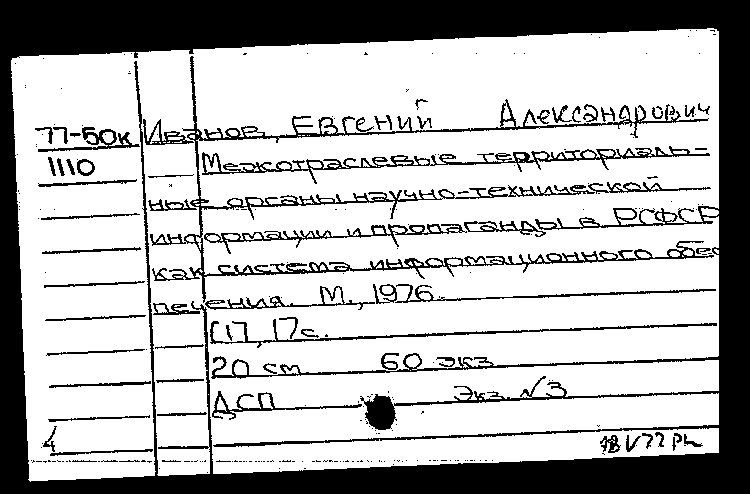 77-50к Иванов, Евгений Александрович
1110 Межотраслевые территориаль-
ные органы научно-технической
информации и пропаганды в РСФСР
как система информационного обес
печения. М., 1976.
[17], 17 с.
20 см 60 экз
ДСП Экз. №3